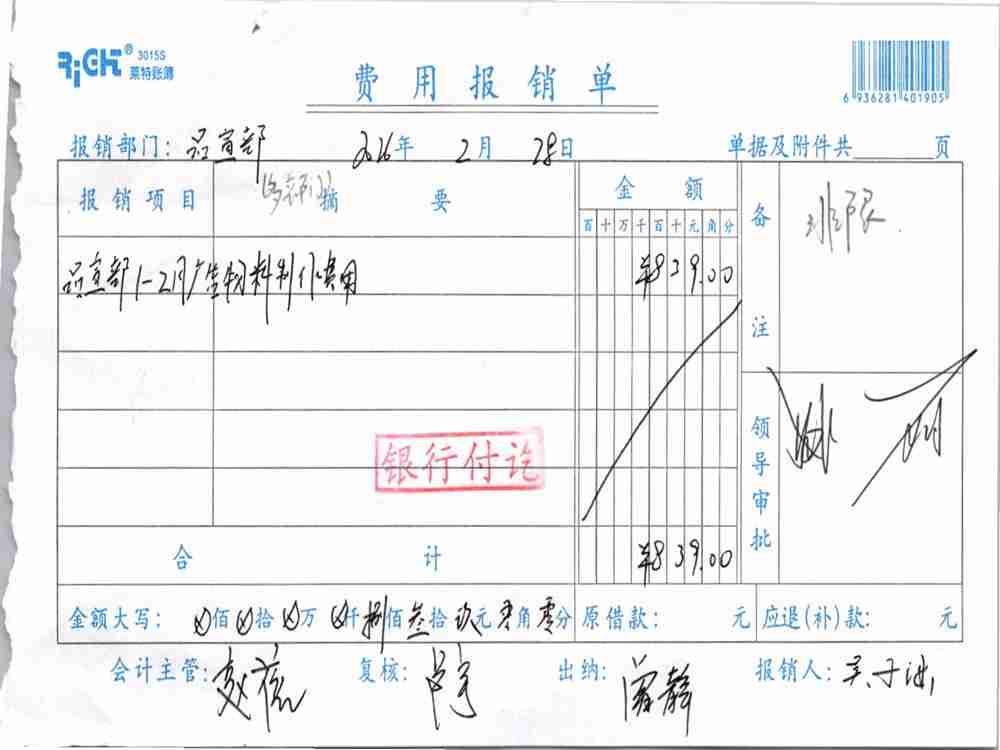 RiGHT® 3015S
莱特账簿
费用报销单
6 936281 401905
报销部门: 品宣部 2016年 2月 28日 单据及附件共 页
报销项目 摘要 金额 备注
百十万千百十元角分
品宣部1-2月产生物料制作费用 ¥839.00
领导审批
银行付讫
合计 ¥839.00
金额大写: ⊗佰⊗拾⊗万⊗仟捌佰叁拾玖元零角零分 原借款: 元 应退(补)款: 元
会计主管: 复核: 出纳: 报销人: